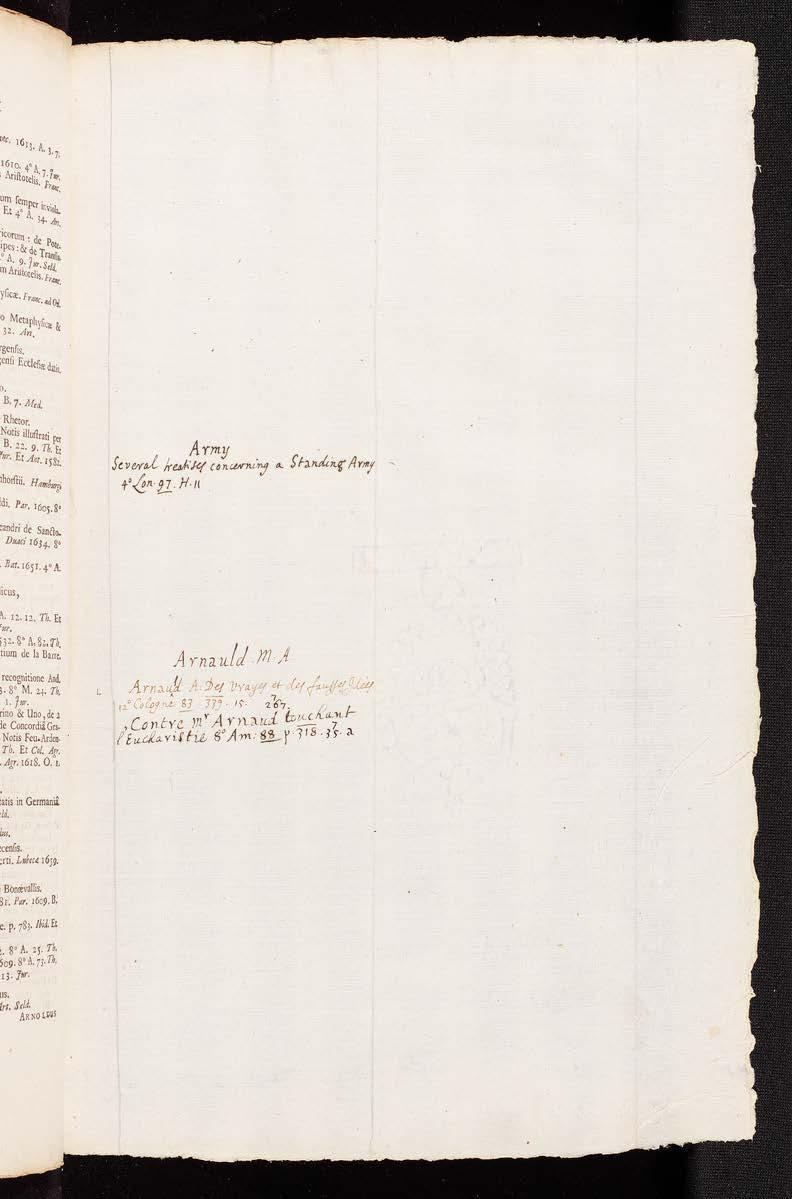 otc. 1613. A. 3. 7.
1610. 4° A. 7. Jur.
Aristotelis. Franc.
um semper inviola.
Et 4° A. 34. Art.
icorum : de Pote-
ipes : & de Transla.
° A. 9. Jur. Seld.
m Aristotelis. Franc.
ysicæ. Franc. ad Od.
o Metaphysicæ &
32. Art.
rgensis.
gensi Ecclesiæ datis.
B. 7. Med.
Rhetor.
Notis illustrati per
B. 22. 9. Th. Et
Jur. Et Art. 1582.
nhorstii. Hamburgi
di. Par. 1605. 8°
eandri de Sancto-
Duaci 1634. 8°
Bat. 1651. 4° A.
icus,
A. 12. 12. Th. Et
Jur.
532. 8° A. 82. Th.
tium de la Barre.
recognitione And.
3. 8° M. 24. Th.
1. Jur.
rino & Uno, de 2
de Concordiâ Gra-
Notis Feu-Arden-
Th. Et Col. Agr.
Agr. 1618. O. 1.
tatis in Germaniâ
eld.
ius.
ecensis.
erti. Lubecæ 1659.
Bonævallis.
81. Par. 1609. B.
e. p. 783. Ibid. Et
. 8° A. 25. Th.
609. 8° A. 73. Th.
13. Jur.
us.
Art. Seld.
ARNOLDUS
Army
Several treatises concerning a Standing Army
4° Lon. 97. H. 11
Arnauld. M. A
Arnauld A. Des Vrayes et des fausses Idées
12° Cologne 83 339. 15. 267.
Contre mr Arnaud touchant
l'Eucharistie 8° Am: 88 p. 318. 35. a